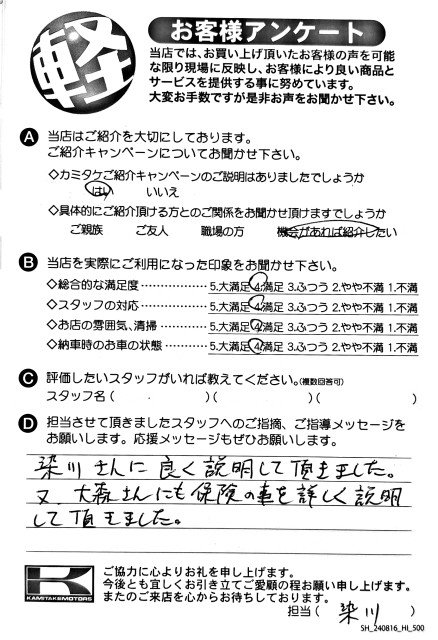 軽
お客様アンケート
当店では、お買い上げ頂いたお客様の声を可能
な限り現場に反映し、お客様により良い商品と
サービスを提供する事に努めています。
大変お手数ですが是非お声をお聞かせ下さい。
A 当店はご紹介を大切にしております。
ご紹介キャンペーンについてお聞かせ下さい。
◇カミタケご紹介キャンペーンのご説明はありましたでしょうか
はい いいえ
◇具体的にご紹介頂ける方とのご関係をお聞かせ頂けますでしょうか
ご親族 ご友人 職場の方 機会があれば紹介したい
B 当店を実際にご利用になった印象をお聞かせ下さい。
◇総合的な満足度 ・・・・・・・・・・・・・・ 5.大満足 4.満足 3.ふつう 2.やや不満 1.不満
◇スタッフの対応 ・・・・・・・・・・・・・・ 5.大満足 4.満足 3.ふつう 2.やや不満 1.不満
◇お店の雰囲気、清掃 ・・・・・・・・・ 5.大満足 4.満足 3.ふつう 2.やや不満 1.不満
◇納車時のお車の状態 ・・・・・・・・・ 5.大満足 4.満足 3.ふつう 2.やや不満 1.不満
C 評価したいスタッフがいれば教えてください。(複数回答可)
スタッフ名 ( )( )( )
D 担当させて頂きましたスタッフへのご指摘、ご指導メッセージを
お願いします。応援メッセージもぜひお願いします。
染川さんに良く説明して頂きました。
又、大森さんにも保険の事を詳しく説明
して頂きました。
KAMITAKEMOTORS
ご協力に心よりお礼を申し上げます。
今後とも宜しくお引き立てご愛顧の程お願い申し上げます。
またのご来店を心からお待ちしております。
担当 ( 染川 )
SH_240816_HI_500